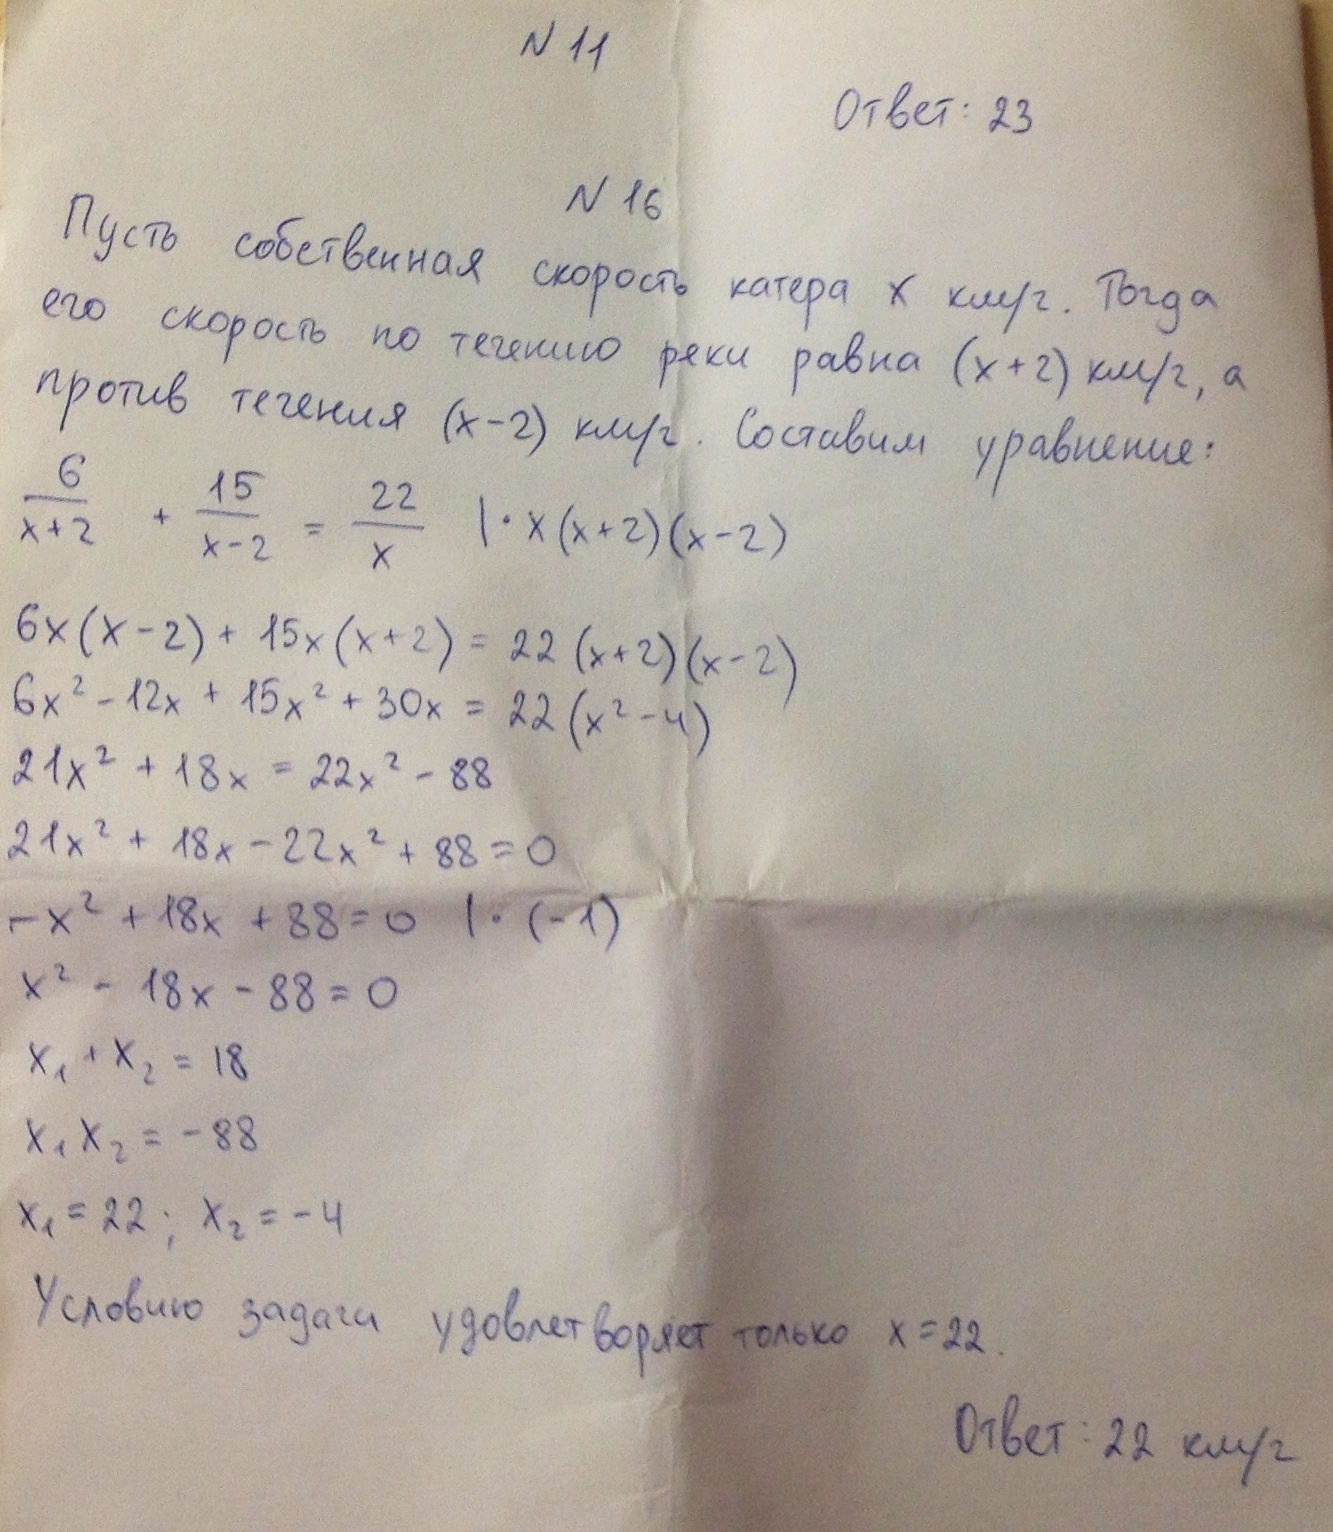 N 11
Ответ: 23
N 16
Пусть собственная скорость катера x км/ч. Тогда
его скорость по течению реки равна (x+2) км/ч, а
против течения (x-2) км/ч. Составим уравнение:
6/(x+2) + 15/(x-2) = 22/x | · x(x+2)(x-2)
6x(x-2) + 15x(x+2) = 22(x+2)(x-2)
6x² - 12x + 15x² + 30x = 22(x² - 4)
21x² + 18x = 22x² - 88
21x² + 18x - 22x² + 88 = 0
-x² + 18x + 88 = 0 | · (-1)
x² - 18x - 88 = 0
x₁ + x₂ = 18
x₁ x₂ = -88
x₁ = 22; x₂ = -4
Условию задачи удовлетворяет только x = 22.
Ответ: 22 км/ч